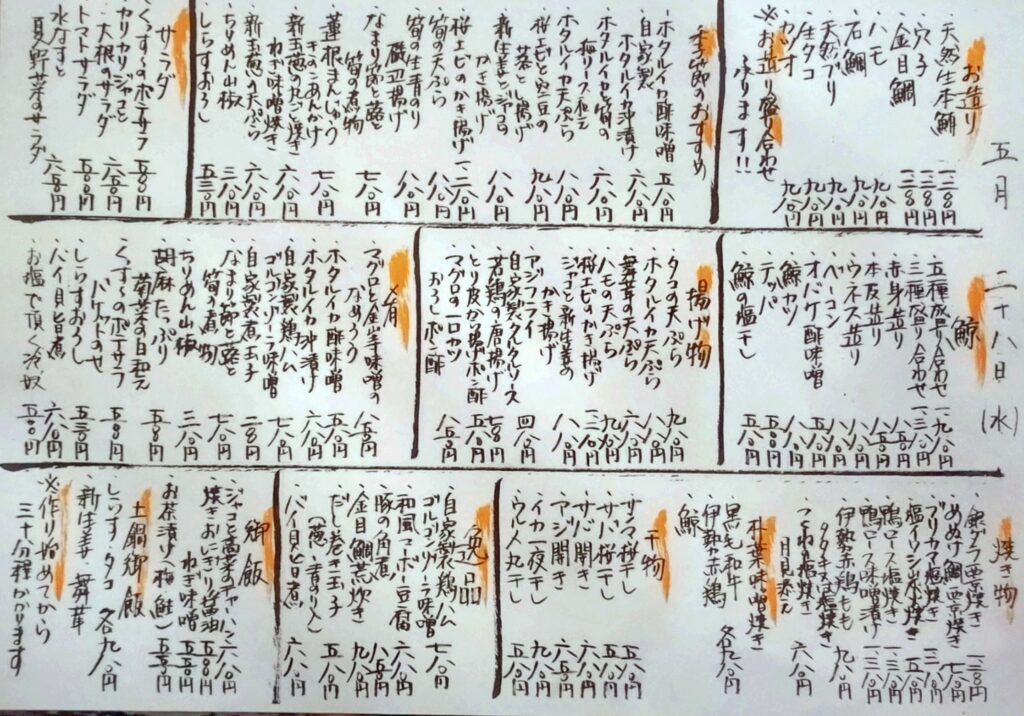 五月二十八日(水)
お造り
・天然生本鮪 一二八〇円
・穴子 一二八〇円
・金目鯛 一二八〇円
・ハモ 九八〇円
・石鯛 九八〇円
・天然ブリ 九八〇円
・生タコ 九八〇円
・カツオ 九八〇円
※お造り盛り合わせ
承ります!!
季節のおすすめ
・ホタルイカ酢味噌 五八〇円
・自家製
ホタルイカ沖漬け 六八〇円
・ホタルイカと筍の
梅リースで和え
・ホタルイカ天ぷら 八八〇円
・桜エビと空豆の
かき揚げ
・新生姜とジャコの
かき揚げ 八八〇円
・桜エビのかき揚げ
・筍の天ぷら 八八〇円
・筍の生青のり
磯辺揚げ 八八〇円
・なまり節と蕗と
筍の煮物 七八〇円
・蓮根まんじゅう
きのこあんかけ 七八〇円
・新玉葱の丸ごと焼き
ねぎ味噌焼き 六八〇円
・新玉葱の天ぷら 六八〇円
・ちりめん山椒 三八〇円
・しらすおろし 五三〇円
サラダ
・くっすくのポテサラ 五八〇円
・カリカリジャコと
大根のサラダ 六五〇円
・トマトサラダ 五八〇円
・水なすと
夏野菜のサラダ 六八〇円
鯨
・五種盛り合わせ
・三種盛り合わせ
・赤身造り
・本皮造り
・ウネス造り
・ベーコン
・オバケ酢味噌
・鯨カツ
・テッパ
・鯨の塩干し
揚げ物
・タコの天ぷら 九八〇円
・ホタルイカ天ぷら 八八〇円
・舞茸の天ぷら 六八〇円
・ハモの天ぷら 九八〇円
・桜エビのかき揚げ
・ジャコと新生姜の
かき揚げ 八八〇円
・アジフライ
自家製タルタルソース 四八〇円
・若鶏の唐揚げ
・とり皮から揚げポン酢 五八〇円
・マグロの一口カツ
おろしポン酢 八五〇円
肴
・マグロと金山寺味噌の
なめろう 八五〇円
・ホタルイカ酢味噌 五八〇円
・ホタルイカ沖漬け 六八〇円
・自家製鶏ハム
ゴルゴンゾーラ味噌 七八〇円
・自家製煮玉子 二八〇円
・なまり節と蕗と
筍の煮物 七八〇円
・ちりめん山椒 三八〇円
・胡麻たっぷり
菊菜の白和え 五八〇円
・くっすくのポテサラ
バケットのせ 五八〇円
・しらすおろし 五三〇円
・バイ貝旨煮 六八〇円
・お塩で頂く冷奴 五八〇円
焼き物
・銀ダラ西京焼き
・めぬけ鯛西京焼き
・ブリカマ塩焼き
・塩イワシ山椒焼き
・鴨ロース塩焼き
・鴨ロース味噌漬け
・伊勢赤鶏もも
タタキ又は塩焼き 九八〇円
・つくね塩焼き
月見添え 六八〇円
朴葉味噌焼き
・黒毛和牛
・伊勢赤鶏
・鯨 各九八〇円
干物
・サンマ桜干し 五八〇円
・サバ桜干し 五八〇円
・サバ開き
・アジ開き 六五〇円
・イカ一夜干し
・ウルメ丸干し 五八〇円
逸品
・自家製鶏ハム
ゴルゴンゾーラ味噌 七八〇円
・和風マーボー豆腐 六八〇円
・豚の角煮 八五〇円
・金目鯛荒炊き 九八〇円
・だし巻き玉子
(葱、青のり入) 五八〇円
・バイ貝旨煮 六八〇円
御飯
・ジャコと高菜のチャーハン 六八〇円
・焼きおにぎり(醤油
ねぎ味噌 五五〇円
・お茶漬け(梅、鮭) 五五〇円
土鍋御飯
・しらす・タコ 各九八〇円
・新生姜・舞茸
※作り始めてから
三十分程かかります